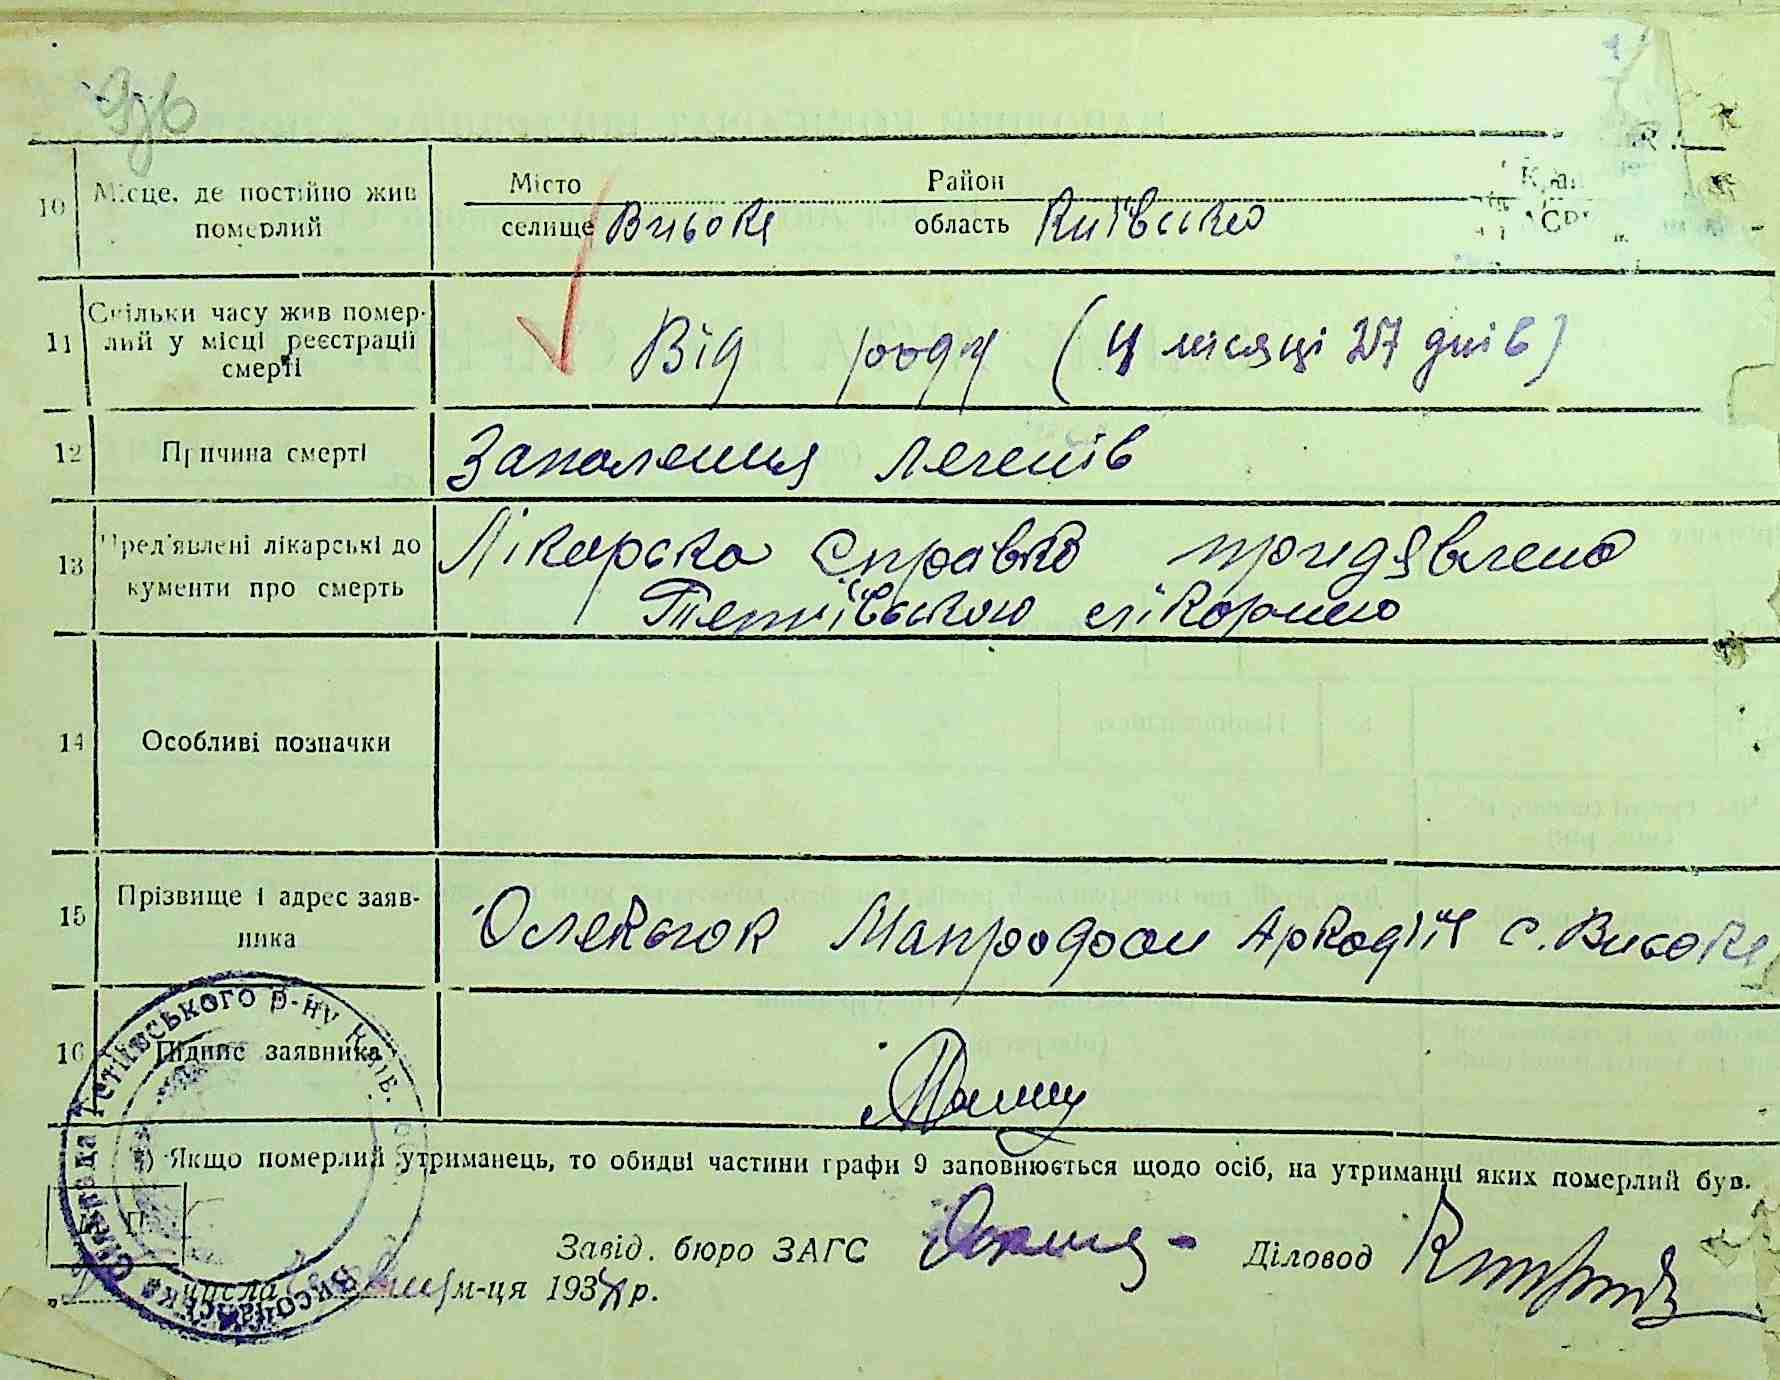 10 Місце, де постійно жив померлий
Місто селище Високе
Район область Київська
11 Скільки часу жив помер-
лий у місці реєстрації
смерті
Від роду (4 місяці 27 днів)
12 Причина смерті
Запалення легенів
13 Пред'явлені лікарські до
кументи про смерть
Лікарська справка придявлено
лікарнею
14 Особливі позначки
15 Прізвище і адрес заяв-
ника
Олексюк Аркадій с. Високе
16 Підпис заявника
*) Якщо померлий утриманець, то обидві частини графи 9 заповнюється щодо осіб, на утриманні яких померлий був.
М. П.
Завід. бюро ЗАГС
Діловод
числа м-ця 193 р.
Височанська Сільрада Тетіївського р-ну Київ. обл.